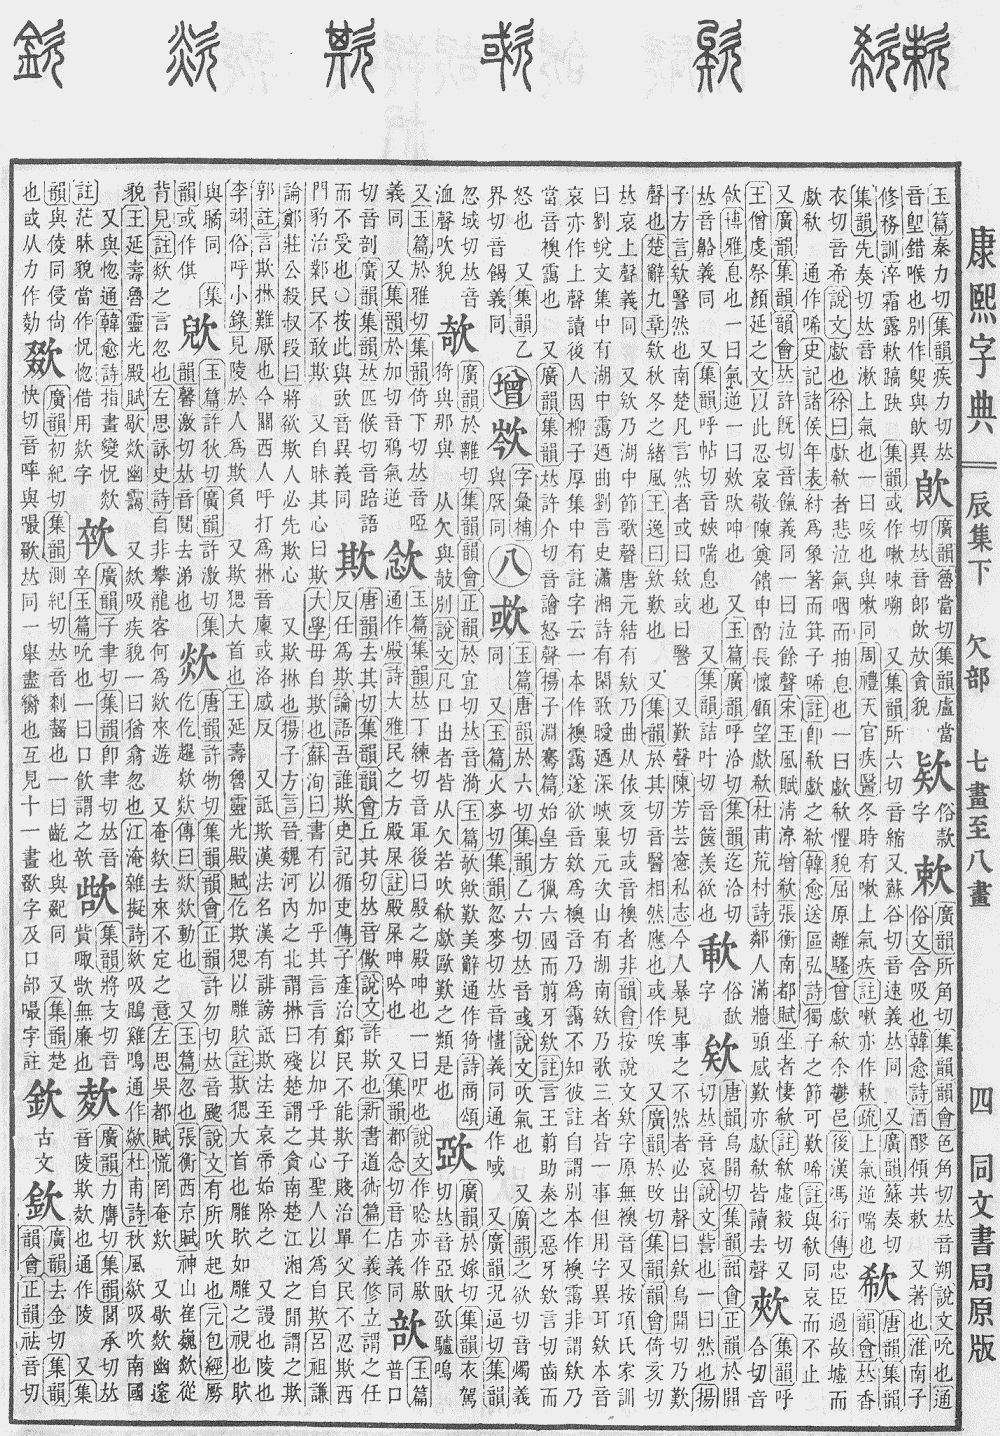 康熙字典 辰集下 欠部 七畫至八畫 四 同文書局原版
玉篇秦力切集韻疾力切𠀤
音堲錯喉也別作
廣韻魯當切集韻盧當
切𠀤音郎 貪貌
欵
俗款
字
欶
廣韻所角切集韻韻會色角切𠀤音朔說文吮也通
俗文含吸也韓愈詩酒醪傾共欶 又著也淮南子
修務訓淬霜露欶蹻趹 又集韻或作嗽㖩嗍 又集韻所六切音縮 又蘇谷切義𠀤同 又廣韻蘇奏切
集韻先奏切𠀤音漱上氣也一曰咳也與嗽同周禮天官疾醫冬時有嗽上氣疾註嗽亦作欶疏上氣逆喘也
欷
唐韻集韻
韻會𠀤香
衣切音希說文歔也徐曰歔欷者悲泣氣咽而抽息也一曰歔欷懼貌屈原離騷曾歔欷余鬱邑後漢馮衍傳忠臣過故墟而
歔欷 通作唏史記諸侯年表紂爲象箸而箕子唏註卽欷歔之欷韓愈送區弘詩獨子之節可歎唏註與欷同哀而不止
又廣韻集韻韻會𠀤許旣切音餼義同一曰泣餘聲宋玉風賦清凉增欷張衡南都賦坐者悽欷註欷虛殺切又
王僧虔祭顏延之文以此忍哀敬陳奠饋申酌長懷顧望歔欷杜甫荒村詩鄰人滿牆頭感歎亦歔欷皆讀去聲
集韻呼
合切音
欱博雅息也一曰氣逆一曰欨欱呷也 又玉篇廣韻呼洽切集韻迄洽切
𠀤音 義同 又集韻呼帖切音 喘息也 又集韻詰叶切音篋羨欲也
俗歃
字
欸
唐韻烏開切集韻韻會正韻於開
切𠀤音哀說文訾也一曰然也揚
子方言欸譍然也南楚凡言然者或曰欸或曰譍 又歎聲陳芳芸窻私志今人暴見事之不然者必出聲曰欸烏開切乃歎
聲也楚辭九章欸秋冬之緒風王逸曰欸歎也 又集韻於其切音醫相然應也或作唉 又廣韻於改切集韻韻會倚亥切
𠀤哀上聲義同 又欸乃湖中節歌聲唐元結有欸乃曲从依亥切或音襖者非韻會按說文欸字原無襖音又按項氏家訓
曰劉蛻文集中有湖中靄迺曲劉言史瀟湘詩有閑歌曖迺深峽裏元次山有湖南欸乃歌三者皆一事但用字異耳欸本音
哀亦作上聲讀後人因柳子厚集中有註字云一本作襖靄遂欲音欸爲襖音乃爲靄不知彼註自謂別本作襖靄非謂欸乃
當音襖靄也 又廣韻集韻𠀤許介切音譮怒聲揚子淵騫篇始皇方獵六國而翦牙欸註言王翦助秦之惡牙欸言切齒而
怒也 又集韻乙
界切音餲義同
增
字彙補
與 同
八
玉篇唐韻於六切集韻乙六切𠀤音彧說文吹氣也 又廣韻之欲切音燭義
同 又玉篇火麥切集韻忽麥切𠀤音 義同通作 又廣韻況逼切集韻
忽域切𠀤音
洫聲吹貌
欹
廣韻於離切集韻韻會正韻於宜切𠀤音漪 玉篇欹欤歎美辭通作猗詩商頌
猗與那與 从欠與攲別說文凡口出者皆从欠若吹欷歔歐歎之類是也
廣韻於嫁切集韻衣駕
切𠀤音亞歐 驢鳴
又玉篇於雅切集韻倚下切𠀤音啞
義同 又集韻於加切音鴉氣逆
玉篇集韻𠀤丁練切音軍後曰殿之殿呻也一曰呎也說文作唸亦作
通作殿詩大雅民之方殿屎註殿屎呻吟也 又集韻都念切音店義同
玉篇
普口
切音剖廣韻集韻𠀤匹候切音踣語
而不受也〇按此與 音異義同
欺
唐韻去其切集韻韻會丘其切𠀤音僛說文詐欺也新書道術篇仁義修立謂之任
反任爲欺論語吾誰欺史記循吏傳子產治鄭民不能欺子賤治單父民不忍欺西
門豹治鄴民不敢欺 又自昧其心曰欺大學毋自欺也蘇洵曰書有以加乎其言言有以加乎其心聖人以爲自欺呂祖謙
論鄭莊公殺叔段曰將欲欺人必先欺心 又欺惏也揚子方言晉魏河內之北謂惏曰殘楚謂之貪南楚江湘之閒謂之欺
郭註言欺惏難厭也今關西人呼打爲惏音廩或洛感反 又詆欺漢法名漢有誹謗詆欺法至哀帝始除之 又謾也陵也
李翊俗呼小錄見陵於人爲欺負 又欺 大首也王延壽魯靈光殿賦仡欺 以雕 註欺 大首也雕 如雕之視也
與 同 集
韻或作倛
玉篇許狄切廣韻許激切集
韻馨激切𠀤音 去涕也
欻
唐韻許物切集韻韻會正韻許勿切𠀤音颮說文有所吹起也元包經
仡仡 欻欻傳曰欻欻動也 又玉篇忽也張衡西京賦神山崔巍欻從
背見註欻之言忽也左思詠史詩自非攀龍客何爲欻來遊 又奄欻去來不定之意左思吳都賦慌罔奄欻 又歇欻幽邃
貌王延壽魯靈光殿賦歇欻幽靄 又欻吸疾貌一曰猶翕忽也江淹雜擬詩欻吸鵾雞鳴通作歘杜甫詩秋風歘吸吹南國
又與惚通韓愈詩指畫變怳欻
註茫昧貌當作怳惚借用欻字
廣韻子聿切集韻卽聿切𠀤音
卒玉篇吮也一曰口飮謂之
集韻將支切音
貲 無廉也
廣韻力膺切集韻閭承切𠀤
音陵欺 也通作陵 又集
韻與倰同侵尙
也或从力作
欼
廣韻初紀切集韻測紀切𠀤音 齧也一曰齝也與 同 又集韻楚
快切音啐與嘬 𠀤同一舉盡臠也互見十一畫 字及口部嘬字註
古
文
欽
廣韻去金切集韻
韻會正韻祛音切